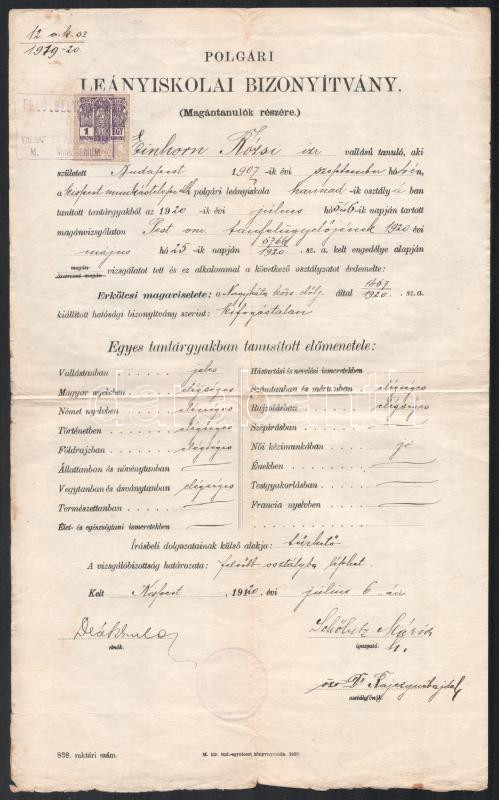 12 a.h.sz
1919-20
POLGÁRI
LEÁNYISKOLAI BIZONYÍTVÁNY.
(Magántanulók részére.)
1 EGY
Einhorn Rózsi izr vallású tanuló, aki
született Budapest 1907-ik évi szeptember hó én,
a kispest munkástelepi polgári leányiskola harmad-ik osztály-á ban
tanított tantárgyakból az 1920-ik évi július hó 5 és 6-ik napján tartott
magánvizsgálaton Pest vm. tanfelügyelőjének 1920 évi
május hó 25-ik napján 1920 sz. a. kelt engedélye alapján
magán- vizsgálatot tett és ez alkalommal a következő osztályzatot érdemelte:
Erkölcsi magaviselete: a közs. elölj. által 1467/1920 sz. a.
kiállított hatósági bizonyítvány szerint: kifogástalan
Egyes tantárgyakban tanusított előmenetele:
Vallástanban jeles
Magyar nyelvben elégséges
Német nyelvben elégséges
Történetben elégséges
Földrajzban elégséges
Állattanban és növénytanban
Vegytanban és ásványtanban elégséges
Természettanban
Élet- és egészségtani ismeretekben
Háztartási és nevelési ismeretekben
Számtanban és mértanban elégséges
Rajzolásban elégséges
Szépírásban
Női kézimunkában jó
Énekben
Testgyakorlásban
Francia nyelvben
Írásbeli dolgozatainak külső alakja: tűrhető
A vizsgálóbizottság határozata: felsőbb osztályba léphet.
Kelt Kispest, 1920 évi július 6-án
elnök.
igazgató.
osztályfőnök.
838. raktári szám.
M. kir. tud.-egyetemi könyvnyomda. 1920.
darabanth